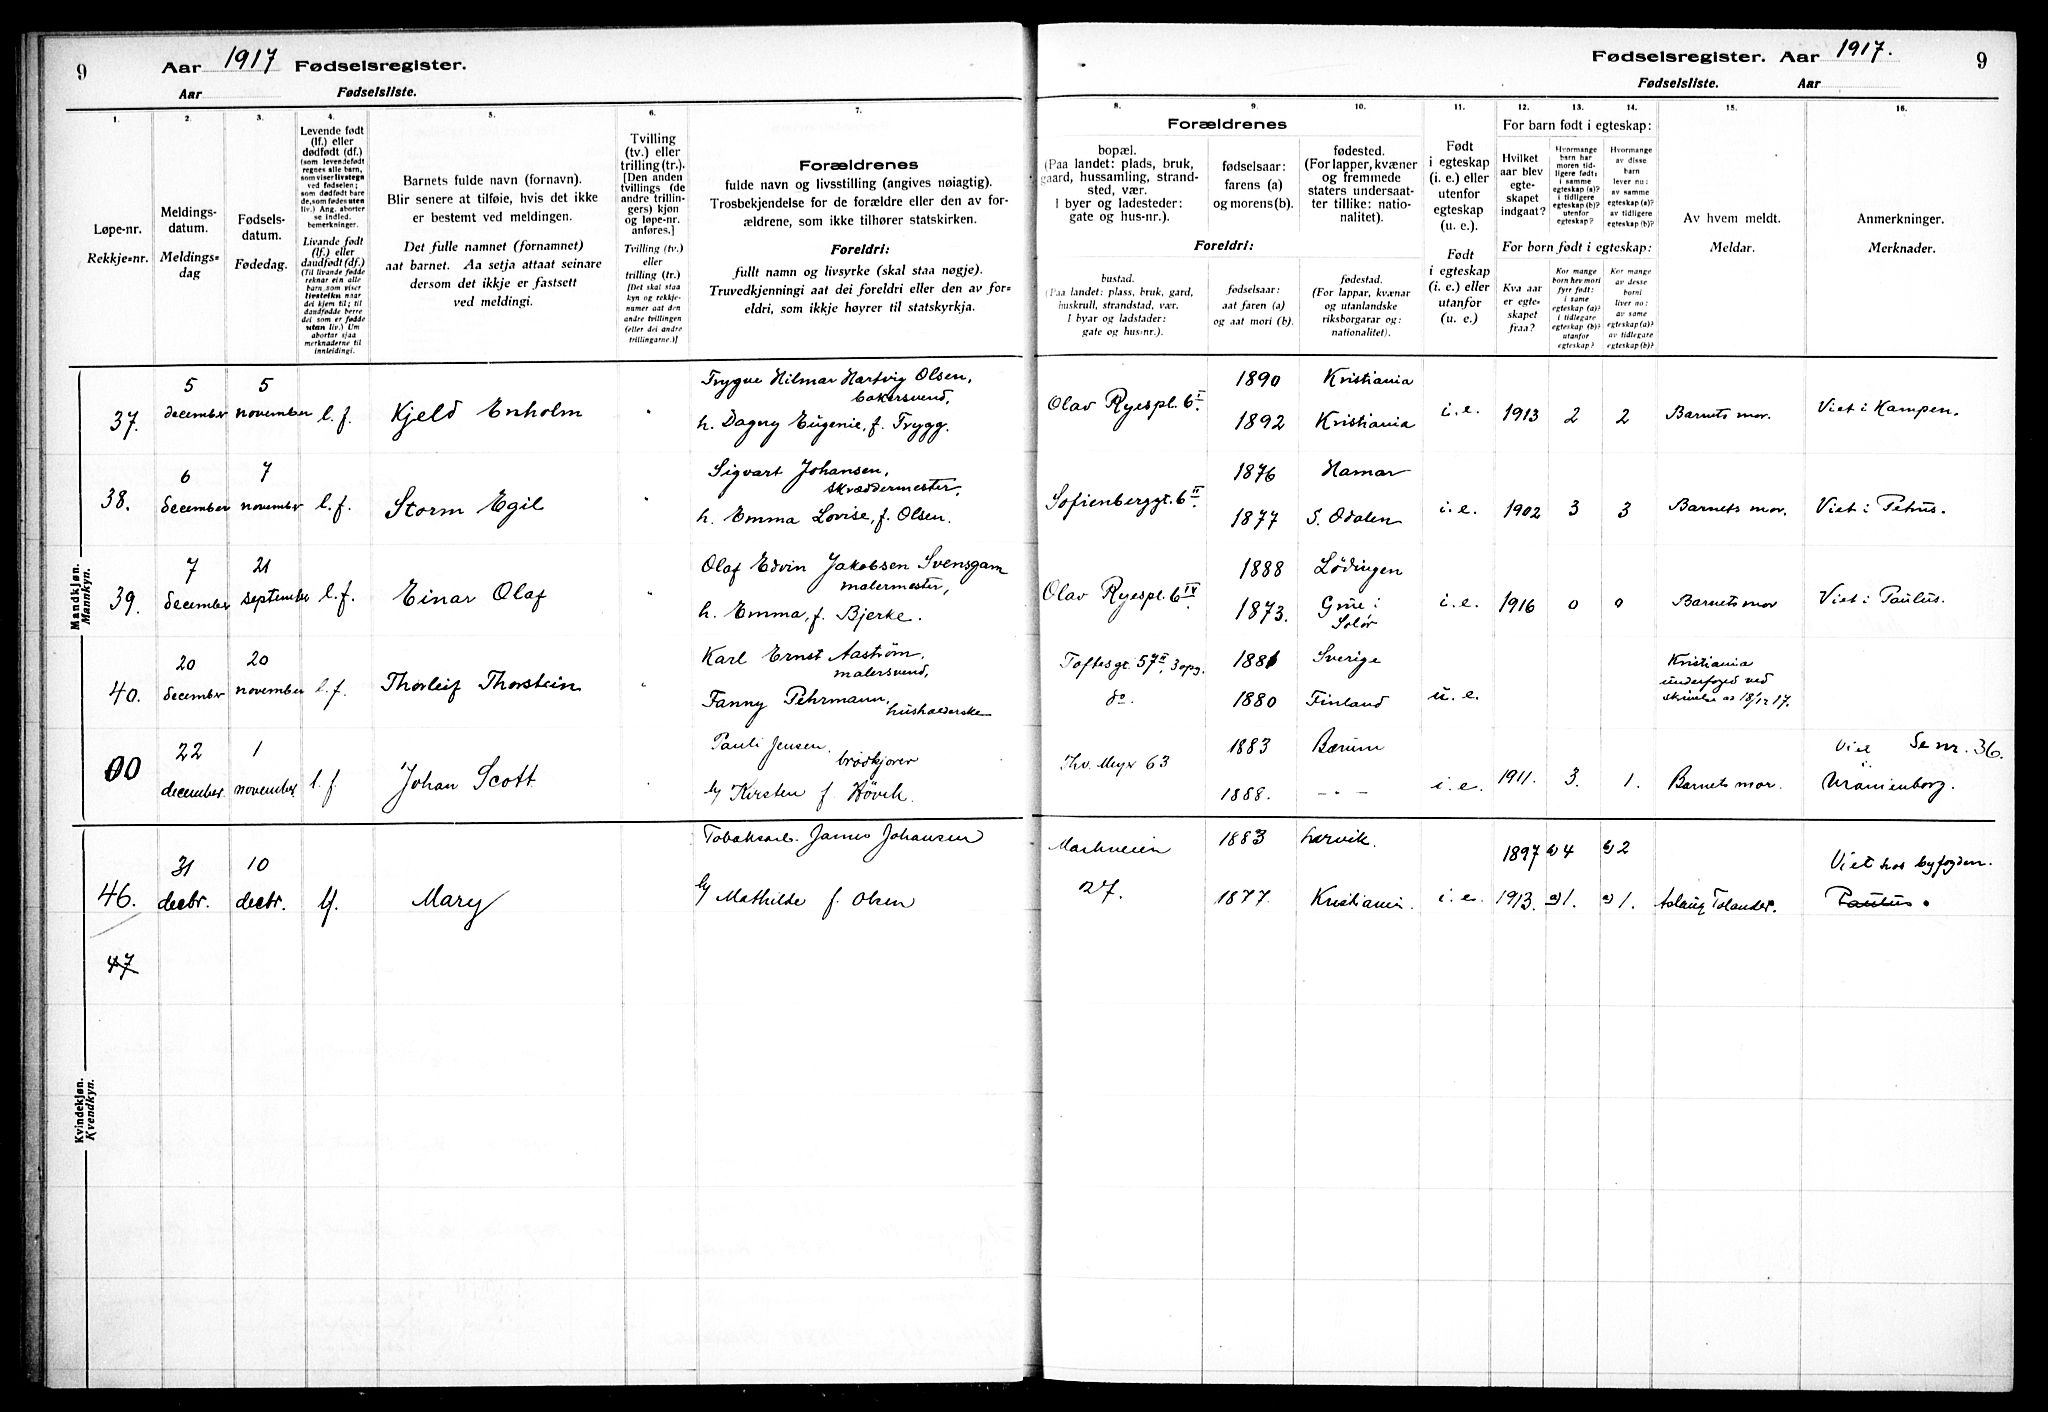 9
Aar 1917 Fødselsregister.
Aar Fødselsliste.
Fødselsregister. Aar 1917.
9
Fødselsliste. Aar
1.
2.
3.
4.
5.
6.
7.
8.
9.
10.
11.
12.
13.
14.
15.
16.
Løpe-nr.
Rekkje-nr.
Meldings-
datum.
Meldings-
dag
Fødsels-
datum.
Fødedag.
Levende født
(lf.) eller
dødfødt (df.)
(som levendefødt
regnes alle barn,
som viser livstegn
ved fødselen;
som dødfødt bare
de, som fødes uten
liv.) Ang. aborter
se indled.
bemerkninger.
Livande født
(lf.) eller
daudfødt (df.)
(Til livande fødde
reknar ein alle
barn, som viser
livsteikn naar
dei kjem til; til
daudfødde berre
dei som er fødde
utan liv.) Um
abortar sjaa
merknaderne til
innleidingi.
Barnets fulde navn (fornavn).
Blir senere at tilføie, hvis det ikke
er bestemt ved meldingen.
Det fulle namnet (fornamnet)
aat barnet. Aa setja attaat seinare
dersom det ikkje er fastsett
ved meldingi.
Tvilling
(tv.) eller
trilling (tr.).
[Den anden
tvillings (de
andre trillin-
gers) kjøn
og løpe-nr.
anføres.]
Tvilling (tv.)
eller
trilling (tr.)
[Det skal staa
kyn og rekkje-
numer aat den
andre tvillingen
(eller dei andre
trillingarne.)]
Forældrenes
fulde navn og livsstilling (angives nøiagtig).
Trosbekjendelse for de forældre eller den av for-
ældrene, som ikke tilhører statskirken.
Foreldri:
fullt namn og livsyrke (skal staa nøgje).
Truvedkjenningi aat dei foreldri eller den av for-
eldri, som ikkje høyrer til statskyrkja.
Forældrenes
bopæl.
(Paa landet: plads, bruk,
gaard, hussamling, strand-
sted, vær.
I byer og ladesteder:
gate og hus-nr.).
fødselsaar:
farens (a)
og morens (b).
fødested.
(For lapper, kvæner
og fremmede
staters undersaat-
ter tillike: natio-
nalitet).
Foreldri:
bustad.
(Paa landet: plass, bruk, gard,
huskrull, strandstad, vær.
I byar og ladstader:
gate og hus-nr.).
fødselsaar:
aat faren (a)
og aat mori (b).
fødestad.
(For lappar, kvænar
og utanlandske
riksborgarar og:
nationalitet).
Født
i egteskap
(i. e.) eller
utenfor
egteskap
(u. e.).
Født
i egteskap
(i. e.) eller
utanfor
(u. e.)
For barn født i egteskap:
Hvilket
aar blev
egte-
skapet
indgaat?
Hvormange
barn har
moren tid-
ligere født:
i samme
egteskap (a)?
i tidligere
egteskap (b)?
utenfor
egteskap?
Hvormange
av disse
barn
lever nu:
av samme
egteskap (a)?
av tidligere
egteskap (b)?
For born født i egteskap:
Kva aar
er egte-
skapet
fraa?
Kor mange
born hev mori
fyrr født:
i same
egteskap (a)?
i tidlegare
egteskap (b)?
utanfor
egteskap?
Kor mange
av desse
borni
liver no:
av same
egteskap (a)?
av tidlegare
egteskap (b)?
Av hvem meldt.
Meldar.
Anmerkninger.
Merknader.
Mandkjøn.
Mannkyn.
37. 5 december 5 november l. f. Kjeld Enholm " Trygve Hilmar Hartvig Olsen, bakersvend,
h. Dagny Eugenie, f. Trygg.
Olav Ryespl. 6 I. 1890 Kristiania
1892 Kristiania i. e. 1913 2 2 Barnets mor. Viet i Kampen.
38. 6 december 7 november l. f. Storm Egil " Sigvart Johansen, skræddermester,
h. Emma Lovise, f. Olsen.
Sofienberggt. 6 II. 1876 Hamar
1877 S. Odalen i. e. 1902 3 3 Barnets mor. Viet i Petrus.
39. 7 december 21 september l. f. Einar Olaf " Olaf Edvin Jakobsen Svensgam malermester,
h. Emma, f. Bjerke.
Olav Ryespl. 6 IV. 1888 Lødingen
1873. Grue i Solør i. e. 1916 0 0 Barnets mor Viet i Paulus.
40. 20 december 20 november l. f. Thorleif Thorstein " Karl Ernst Aastrøm, malersvend,
Fanny Pehrmann, husholderske
Toftesgt. 57 II, 3 opg. 1881 Sverige
do. 1880 Finland u. e. Kristiania underfoged ved skrivelse as 18/12 17.
00 22 december. 1 november l. f. Johan Scott Pauli Jensen. brødkjører
h/ Kirsten f. Høvik.
Thv. Meyr 63 1883 Bærum
1888. - - - i. e. 1911. 3. 1. Barnets mor. Viet i Uranienborg. Se nr. 36.
Kvindekjøn.
Kvendkyn.
46. 31 decbr. 10 decbr. lf. Mary Tobaksarb. James Johansen
h/ Mathilde f. Olsen
Markveien 27. 1883 Larvik.
1877. Kristiania. i. e. 1897 b) 4 b) 2
1913. a) 1. a) 1. Aslaug Tolander. Viet hos byfogden.
Paulus.
47